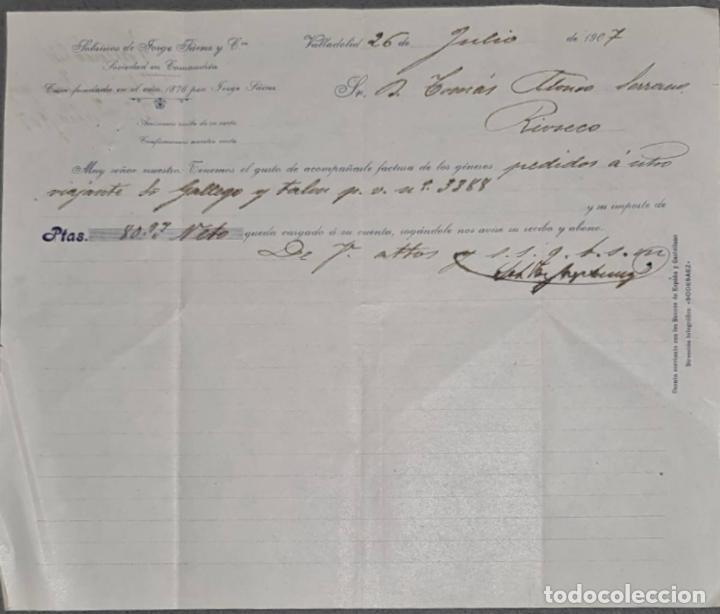 Sobrinos de Jorge Sáenz y Cía
Sociedad en Comandita
Casa fundada en el año 1876 por Jorge Sáenz
Valladolid 26 de Julio de 1907
Sr. D. Tomás Alonso Serrano
Rioseco
Muy señor nuestro: Tenemos el gusto de acompañarle factura de los géneros pedidos á ntro
viajante Sr Gallego y talon p. v. nº 3388
y su importe de
Ptas. 80.93 Neto queda cargado á su cuenta, rogándole nos avise su recibo y abono.
De V. attos y s. s. q. b. s. m
Cuenta corriente con los Bancos de España y Castellano
Dirección telegráfica «SODESAEZ»
todocoleccion